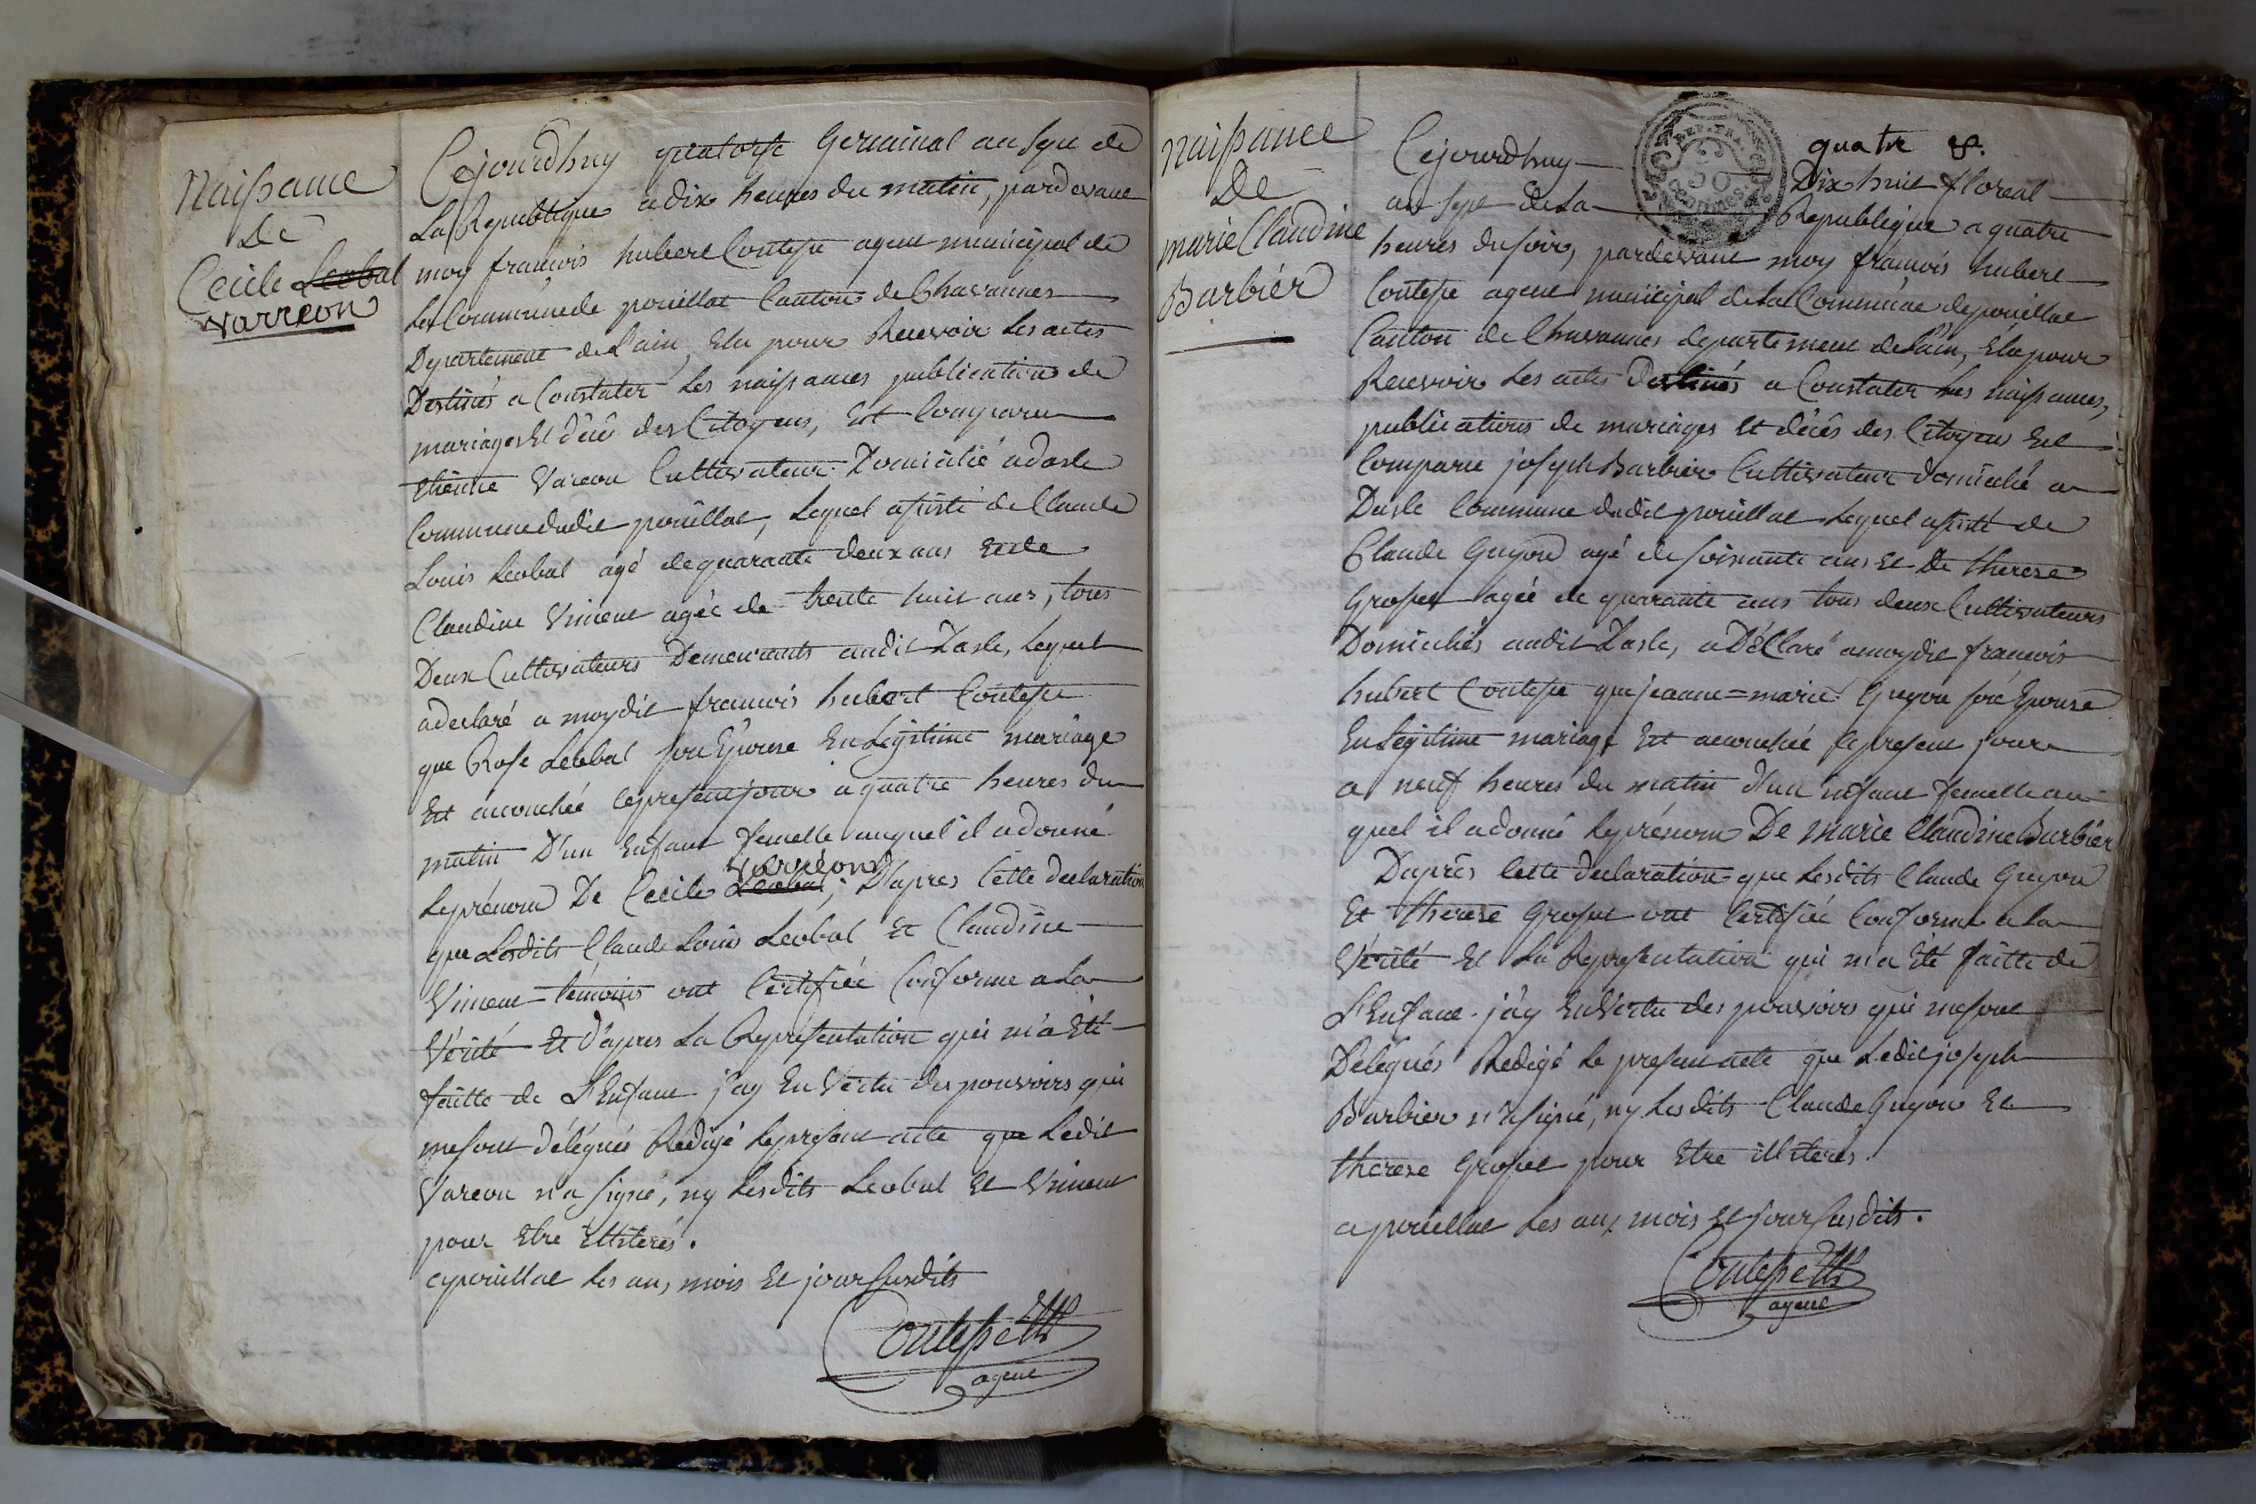 Naissance
De
Cecile Leobal
Varreon
Cejourdhuy quatorse Germinal an sept de
La Republique a dix heures du matin, pardevant
moy francois hubert Contesse agent municipal de
La Commune de pouillat Canton de Chavannes
Departement de L'ain, Elu pour Recevoir Les actes
Destinés a Constater Les naissances publication de
mariages Et décé des Citoyens, Est Comparu
Etienne Vareon Cultivateur Domicilié a dasle
Commune dudit pouillat, Lequel assisté de Claude
Louis Leobal agé de quarante deux ans Et de
Claudine Vincent agée de trente huit ans, tous
Deux Cultivateurs Demeurants audit Dasle, Lequel
a declaré a moydit francois hubert Contesse
que Rose Leobal son Epouse En Légitime mariage
Est acouchée Cepresentjour a quatre heures du
matin D'un Enfant femelle auquel il a donné
Varréon
Le prénom De Cecile Leobal; D'apres Cette declaration
que Lesdits Claude Louis Leobal Et Claudine
Vincent témoins ont Certifiée Conforme a La
Vérité Et D'apres La Représentation qui m'a Eté
faitte de L'Enfant j'ay En Vertu des pouvoirs qui
mesont délégués Redigé Lepresent acte que Ledit
Vareon n'a signé, ny Lesdits Leobal Et Vincent
pour Etre Illiterés.
a pouillat Les an, mois Et jour susdits
Contesse
agent
quatre
Naissance
De
Marie Claudine
Barbier
Cejourdhuy Dix huit floreal
an sept de La Republique a quatre
heures du soir, pardevant moy francois hubert
Contesse agent municipal de La Commune de pouillat
Canton de Chavannes departement de L'ain, Elu pour
Recevoir Les actes Destinés a Constater Les naissances,
publications de mariages Et décés des Citoyens Est
Comparu joseph Barbier Cultivateur domicilié a
Dasle Commune dudit pouillat Lequel assisté de
Claude Guyon agé de soixante ans Et De therese
Grosset agée de quarante ans tous deux Cultivateurs
Domiciliés audit Dasle, a Déclaré amoydit francois
hubert Contesse que jeanne=marie Guyon son Epouse
En Légitime mariage Est acouchée le present jour
a neuf heures du matin d'un enfant femelle au
quel il a donné Le prénom De Marie Claudine Barbier
Dapres Cette declaration que Lesdits Claude Guyon
Et therese Grosset ont Certifiée Conforme a La
Vérité Et La Representation qui m'a Eté faitte de
L'Enfant j'ay En Vertu des pouvoirs qui mesont
Delegués Redigé Le present acte que Ledit joseph
Barbier n'a signé, ny Lesdits Claude Guyon Et
therese Grosset pour Etre illiterés.
a pouillat Les an, mois Et jour susdits.
Contesse
agent